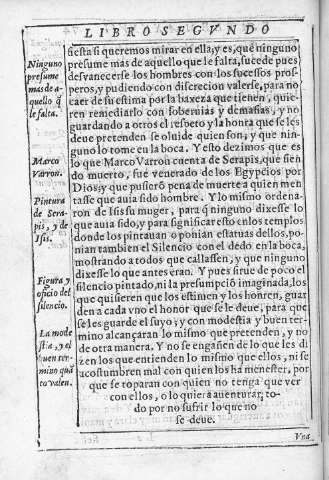 LIBRO SEGVNDO
siesta si queremos mirar en ella; y es, que ninguno
presume mas de aquello que le falta, sucede pues
desvanecerse los hombres con los sucessos pros-
peros, y pudiendo con discrecion valerse, para no
caer de su estima por la baxeza que tienen, quie-
ren remediarlo con sobernias y demasias, y no
guardando a otros el respeto y la honra que se les
deue pretenden se oluide quien son, y que nin-
guno lo tome en la boca. Y esto dezimos que es
lo que Marco Varron cuenta de Serapis, que sien
do muerto, fue venerado de los Egypcios por
Dios; y que pusierō pena de muerte a quien men
tasse que auia sido hombre. Y lo mismo ordena-
ron de Isis su muger, para q̄ ninguno dixesse lo
que auia sido, y para significar esto en los templos
donde los pintauan o ponian estatuas dellos, po-
nian tambien el Silencio con el dedo en la boca,
mostrando a todos que callassen, y que ninguno
dixesse lo que antes eran. Y pues sirue de poco el
silencio pintado, ni la presumpciō imaginada, los
que quisieren que los estimen y los honren, guar
den a cada vno el honor que se le deue, para que
se les guarde el suyo; y con modestia y buen ter-
mino alcançaran lo mismo que pretenden, y no
de otra manera. Y no se engañen de lo que les di
zen los que entienden lo mismo que ellos, ni se
acostumbren mal con quien los ha menester, por
que se toparan con quien no tenga que ver
con ellos, o lo quiera auenturar, to-
do por no sufrir lo que no
se deue.
Vna
Ninguno
presume
mas de a-
quello q̄
le falta.
Marco
Varron.
Pintura
de Sera-
pis, y de
Isis.
Figura y
oficio del
silencio.
La mode
stia, y el
buen ter-
mino quā
to valen.